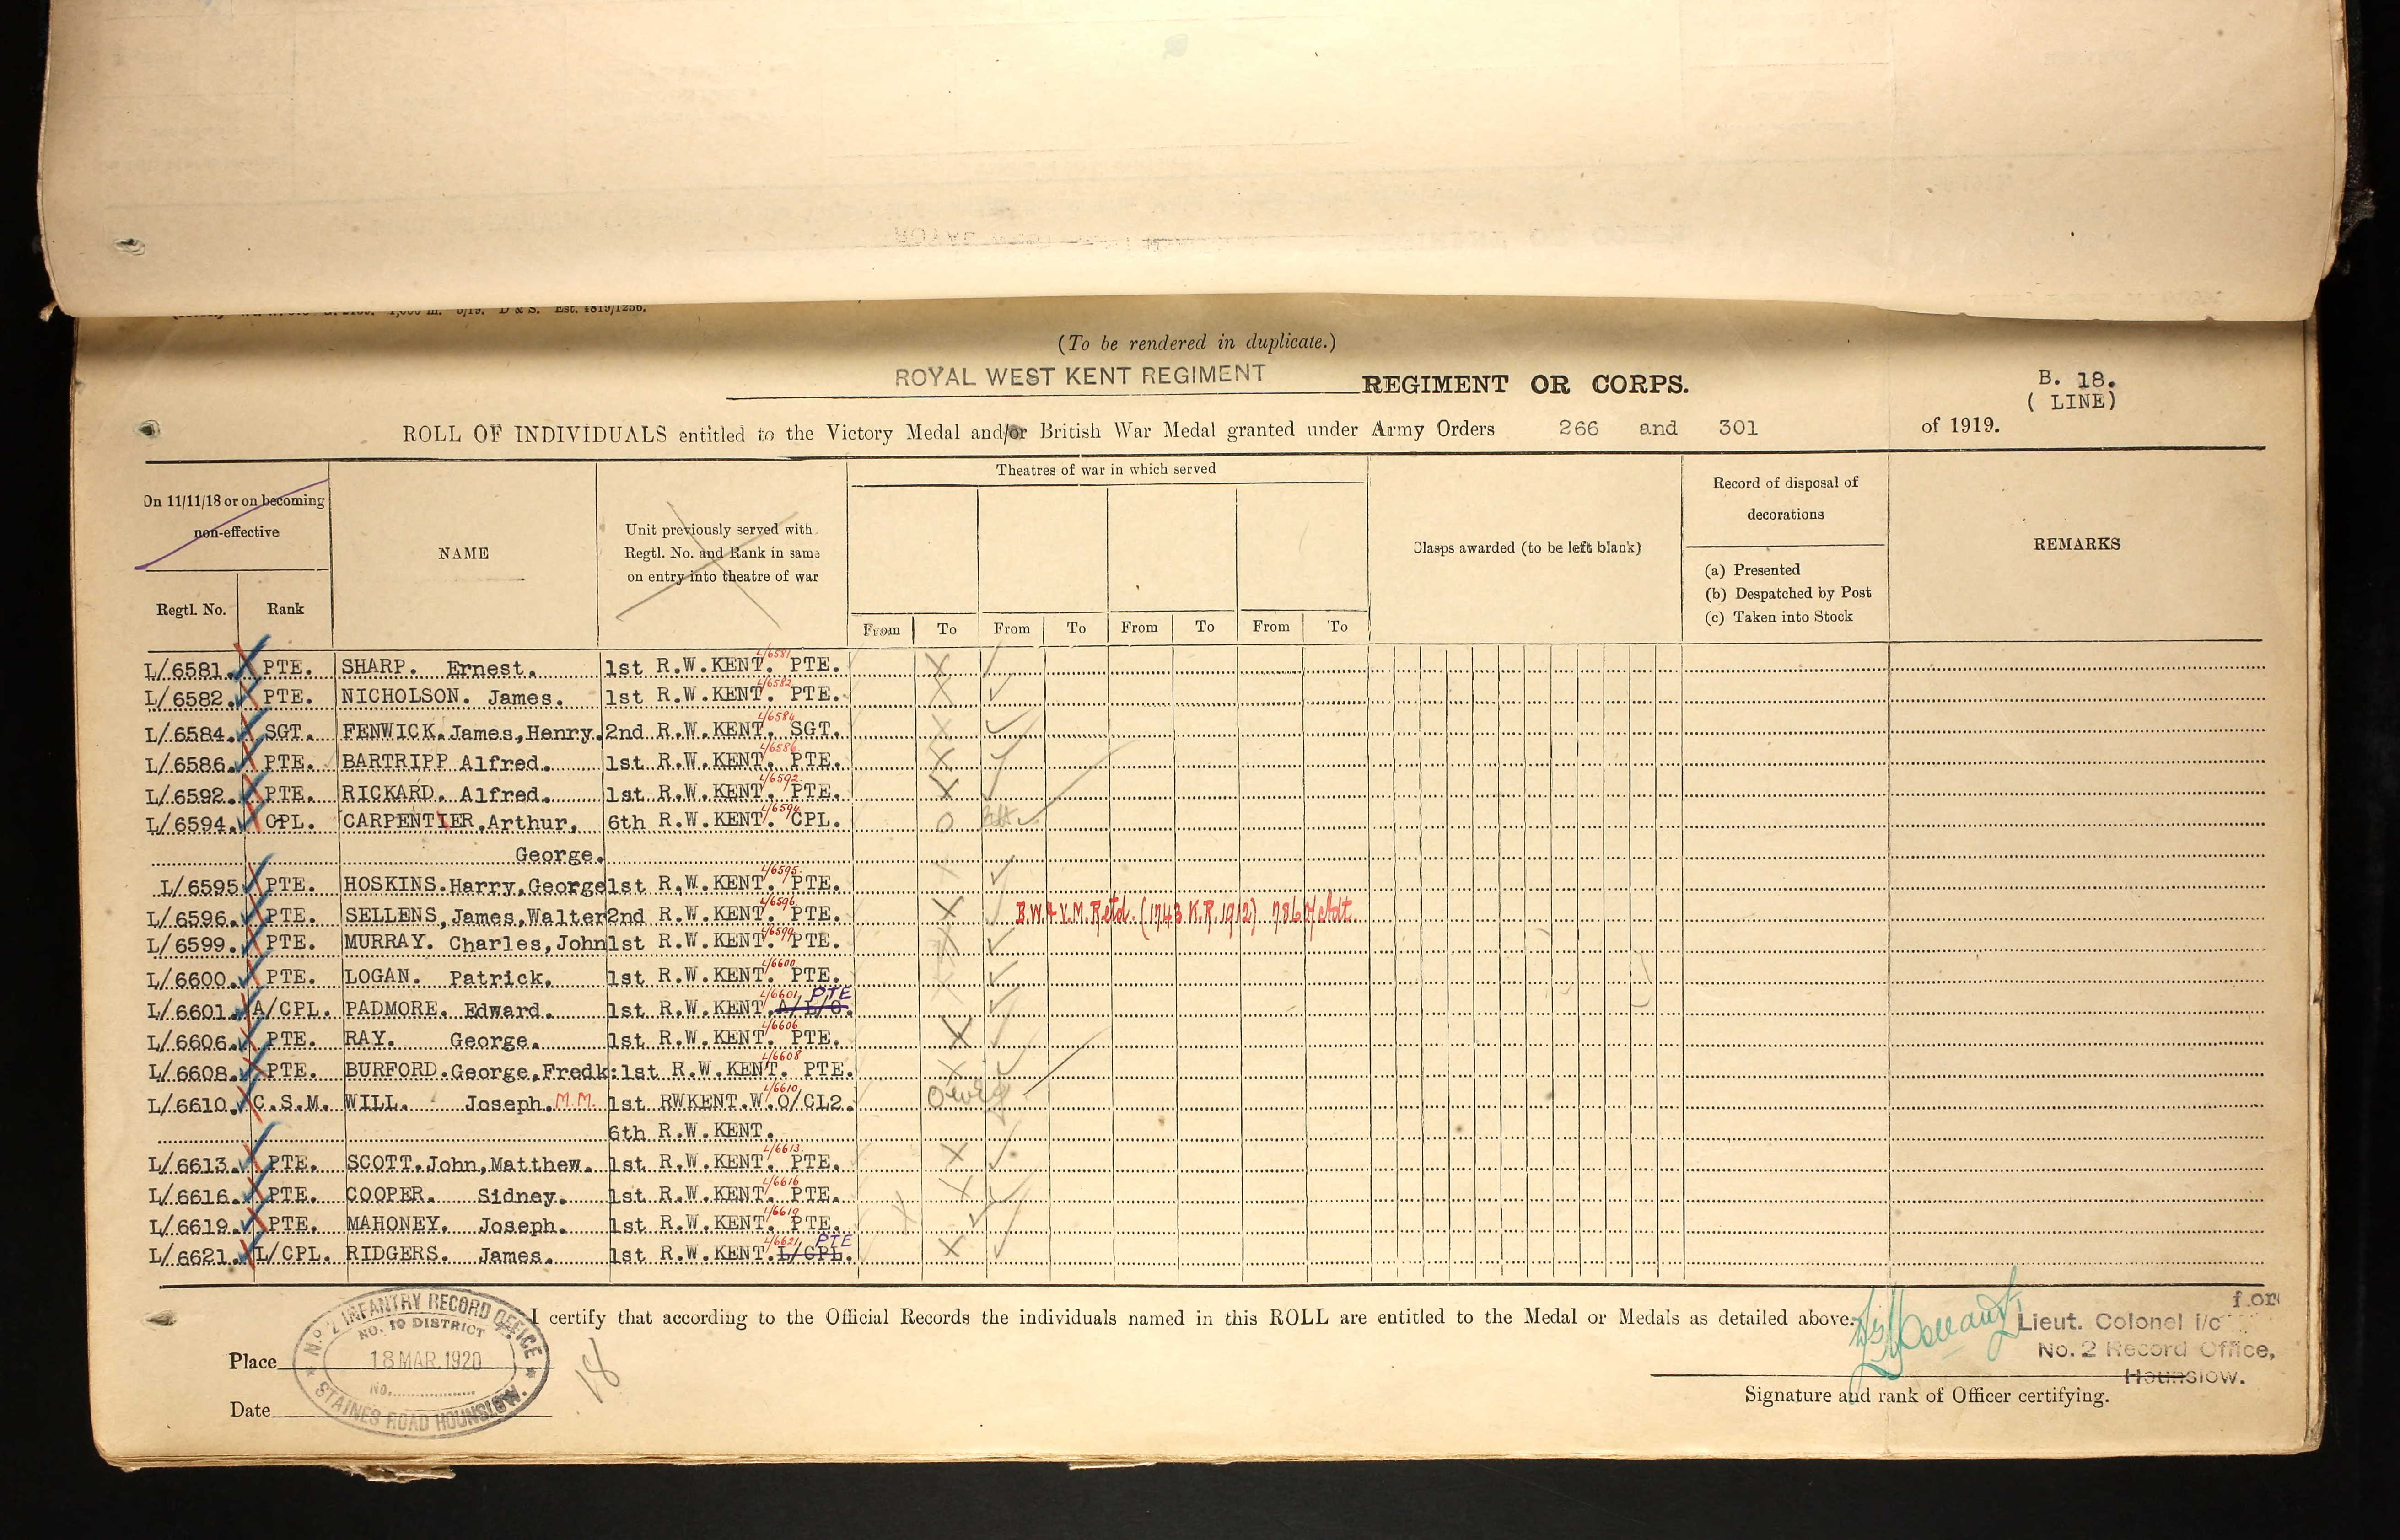 D & S. Est. 1819/1256.
(To be rendered in duplicate.)
ROYAL WEST KENT REGIMENT REGIMENT OR CORPS.
B. 18.
( LINE)
ROLL OF INDIVIDUALS entitled to the Victory Medal and/or British War Medal granted under Army Orders 266 and 301 of 1919.
Theatres of war in which served
On 11/11/18 or on becoming
non-effective
NAME
Unit previously served with
Regtl. No. and Rank in same
on entry into theatre of war
Clasps awarded (to be left blank)
Record of disposal of
decorations
(a) Presented
(b) Despatched by Post
(c) Taken into Stock
REMARKS
Regtl. No. Rank
From To From To From To From To
L/6581. PTE. SHARP. Ernest. 1st R.W.KENT. L/6581 PTE.
L/6582. PTE. NICHOLSON. James. 1st R.W.KENT. L/6582 PTE.
L/6584. SGT. FENWICK.James,Henry. 2nd R.W.KENT. L/6584 SGT.
L/6586. PTE. BARTRIPP Alfred. 1st R.W.KENT. L/6586 PTE.
L/6592. PTE. RICKARD. Alfred. 1st R.W.KENT. L/6592 PTE.
L/6594. CPL. CARPENTIER.Arthur, 6th R.W.KENT. L/6594 CPL.
George.
L/6595 PTE. HOSKINS.Harry,George 1st R.W.KENT. L/6595 PTE.
L/6596. PTE. SELLENS,James,Walter 2nd R.W.KENT. L/6596 PTE. B.W & V.M. Retd. (1743 K.R. 1912)
L/6599. PTE. MURRAY. Charles,John 1st R.W.KENT. L/6599 PTE.
L/6600. PTE. LOGAN. Patrick. 1st R.W.KENT. L/6600 PTE.
L/6601. A/CPL. PADMORE. Edward. 1st R.W.KENT. L/6601 A/L/C. PTE
L/6606. PTE. RAY. George. 1st R.W.KENT. L/6606 PTE.
L/6608. PTE. BURFORD.George,Fredk: 1st R.W.KENT. L/6608 PTE.
L/6610. C.S.M. WILL. Joseph. M.M. 1st RWKENT. L/6610 W.O/CL2.
6th R.W.KENT.
L/6613. PTE. SCOTT.John,Matthew. 1st R.W.KENT. L/6613 PTE.
L/6616. PTE. COOPER. Sidney. 1st R.W.KENT. L/6616 PTE.
L/6619. PTE. MAHONEY. Joseph. 1st R.W.KENT. L/6619 PTE.
L/6621. L/CPL. RIDGERS. James. 1st R.W.KENT. L/6621 L/CPL. PTE
I certify that according to the Official Records the individuals named in this ROLL are entitled to the Medal or Medals as detailed above.
for
Lieut. Colonel i/c
No. 2 Record Office,
Hounslow.
Signature and rank of Officer certifying.
Place
Date
No. 2 INFANTRY RECORD OFFICE
NO. 10 DISTRICT
18 MAR. 1920
No.
STAINES ROAD HOUNSLOW.
18